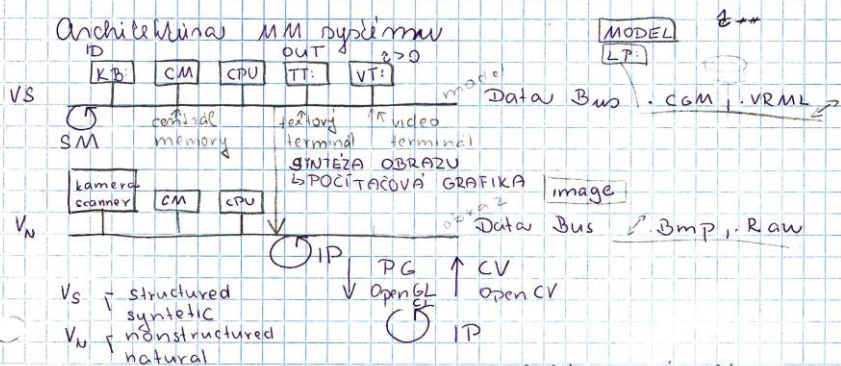 Architektúra MM systému
MODEL
ID
OUT
z>0
LP:
KB:
CM
CPU
TT:
VT:
VS
model
Data Bus . CGM, .VRML
SM
central
memory
textový
terminál
video
terminal
SYNTÉZA OBRAZU
↳POČÍTAČOVÁ GRAFIKA
image
kamera
scanner
CM
CPU
obraz
VN
Data Bus .Bmp, .Raw
IP
PG
CV
OpenGL
CL
OpenCV
IP
VS structured
syntetic
VN nonstructured
natural